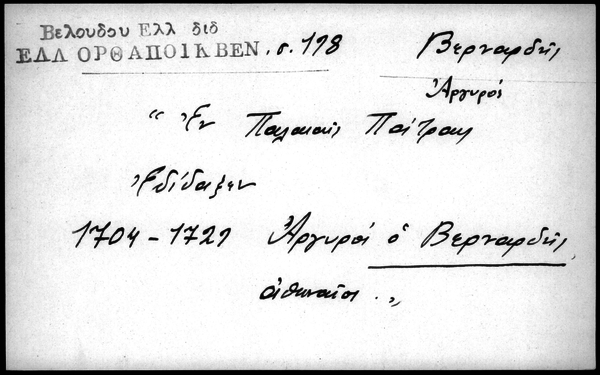 Βελουδου Ελλ διδ
ΕΛΛ ΟΡΘΑΠΟΙΚΒΕΝ. σ. 198 Βερναρδῆς
Ἀργυρός
“ Ἐν Παλαιαῖς Πάτραις
ἐδίδαξεν
1704-1729 Ἀργυρός ὁ Βερναρδῆς,
ἀθηναῖος . „